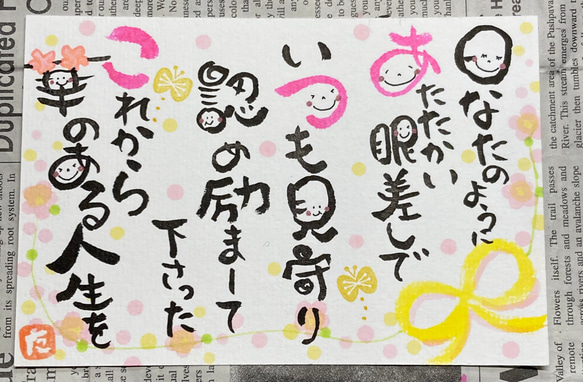 日なたのように
あたたかい
眼差しで
いつも見守り
認め励まして
下さった
これから
華のある人生を
Duplicated
from its spreading root system. In
the catchment area of the Pushpava
River. This stream emerges from
glacier that tumbles downward
Flowers itself. The trail passes
through forests and meadows and
across rivers and an avalanche slope
Valley of
remote